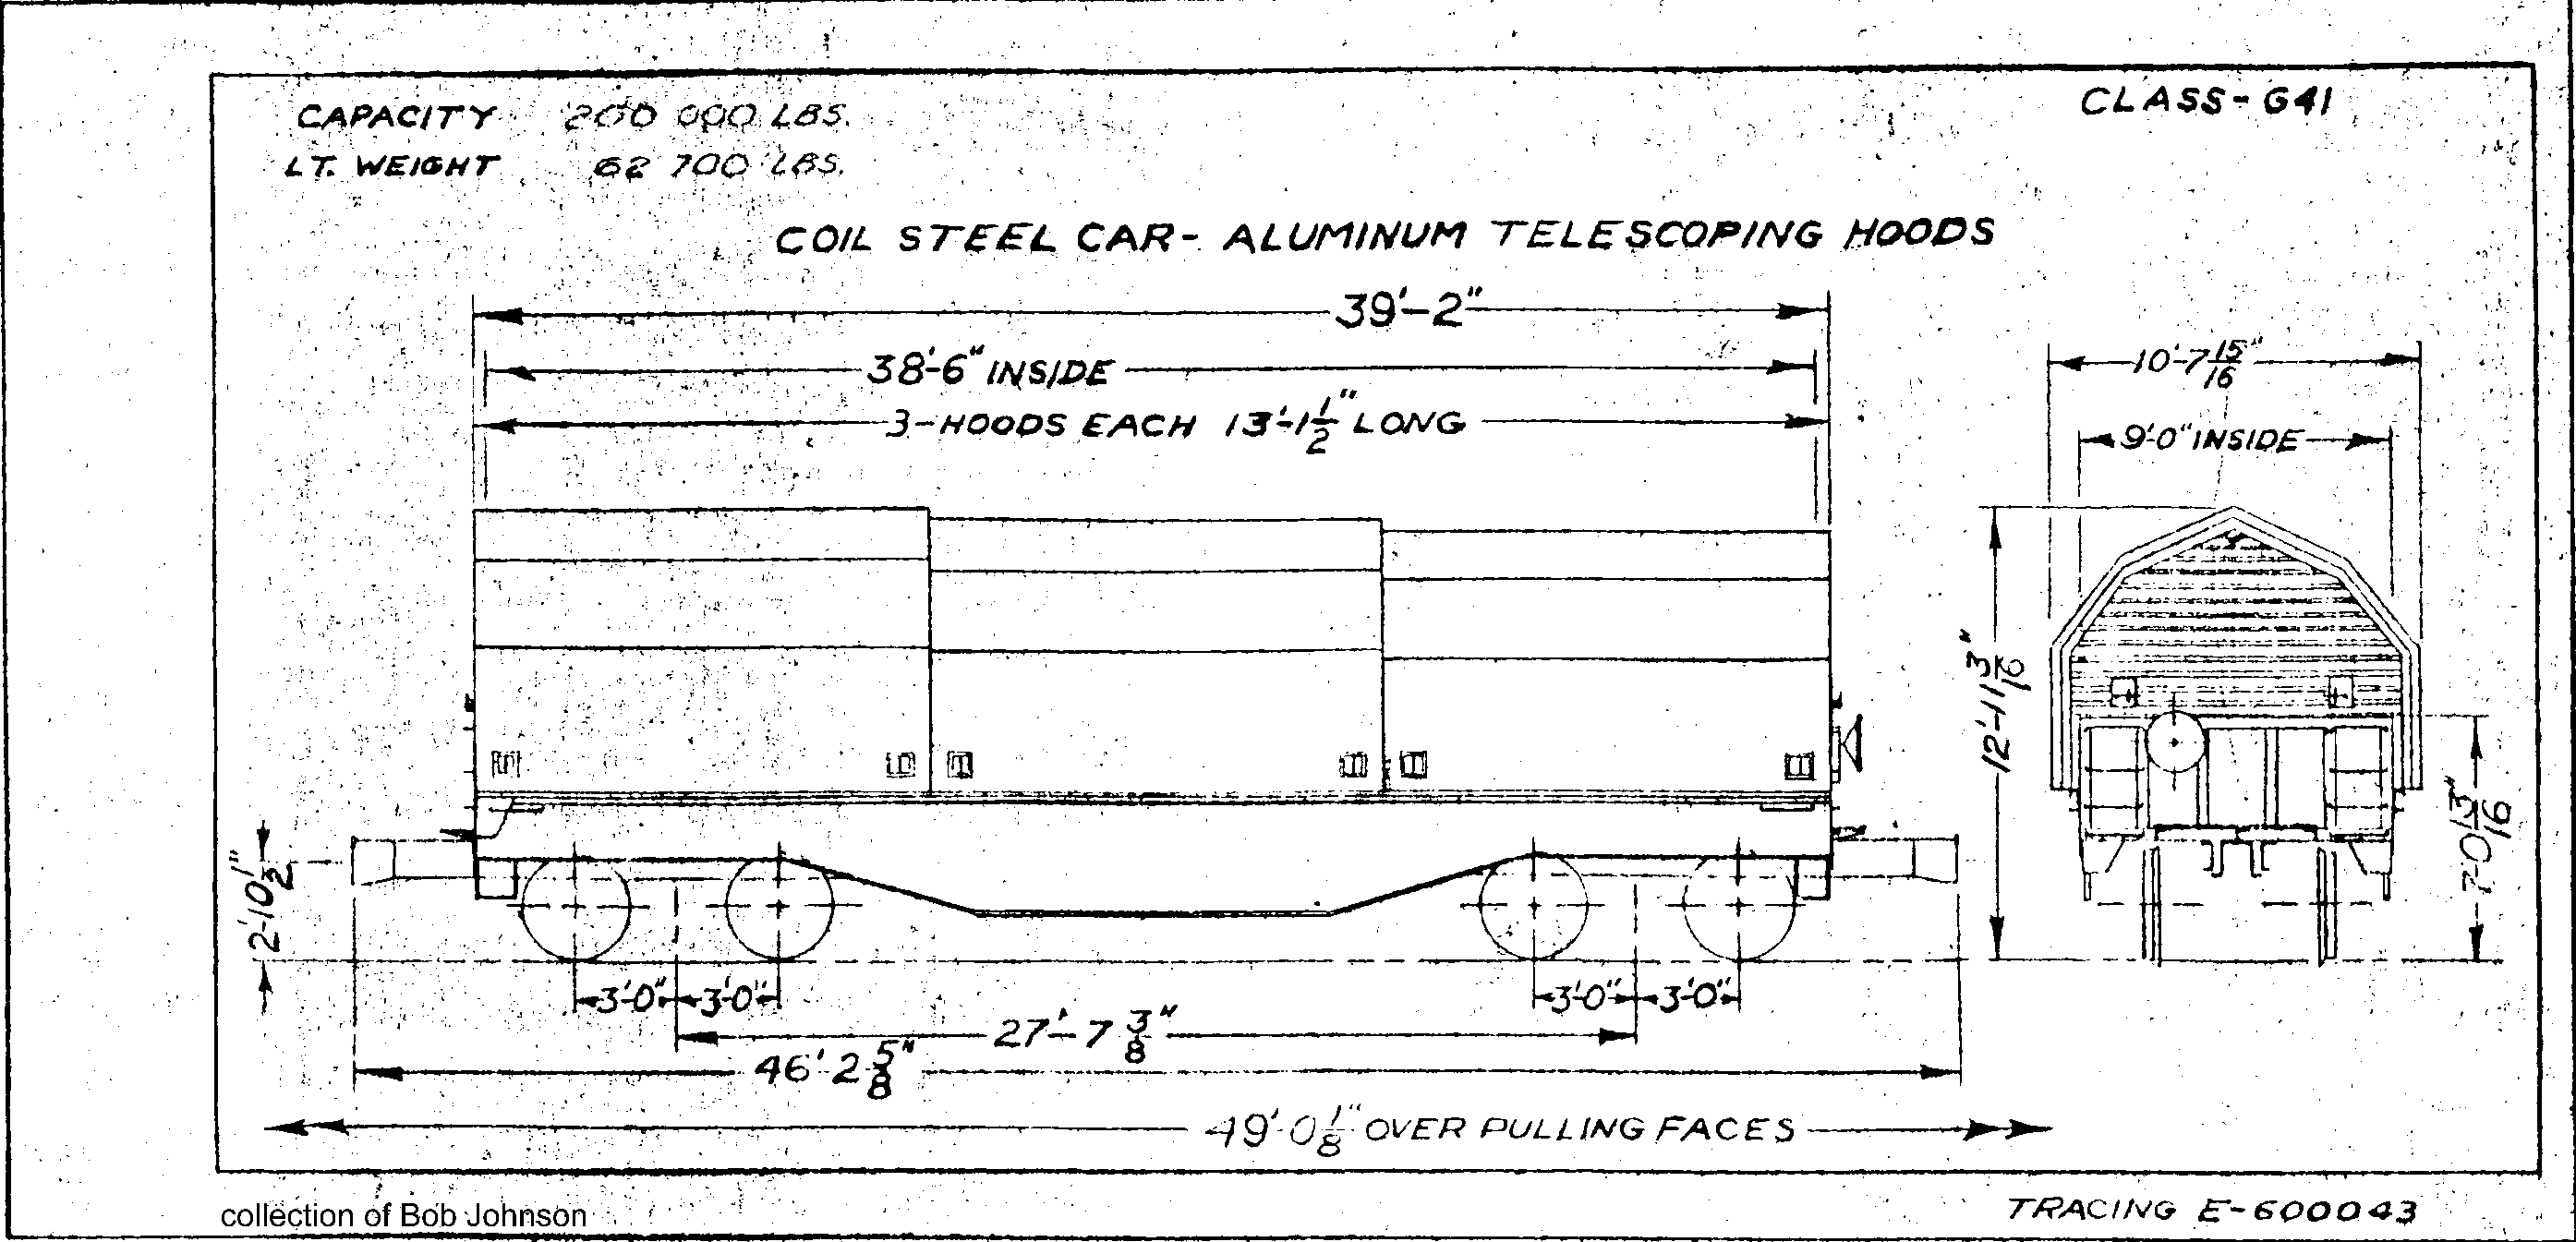 CAPACITY 200 000 LBS.
CLASS-G41
LT. WEIGHT 62 700 LBS.
COIL STEEL CAR- ALUMINUM TELESCOPING HOODS
39'-2"
38'-6" INSIDE
10'-7 15/16"
3-HOODS EACH 13'-1 1/2" LONG
9'-0" INSIDE
12'-11 3/16"
7'-0 13/16"
2'-10 1/2"
3'-0" 3'-0" 3'-0" 3'-0"
27'-7 3/8"
46' 2 5/8"
49'-0 1/8" OVER PULLING FACES
collection of Bob Johnson
TRACING E-600043